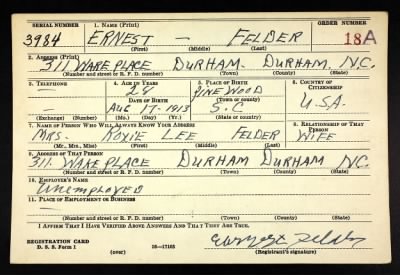 SERIAL NUMBER 1. NAME (Print) ORDER NUMBER
3984 ERNEST — FELDER 18A
(First) (Middle) (Last)
2. ADDRESS (Print)
311 WAKE PLACE DURHAM. DURHAM. N.C.
(Number and street or R. F. D. number) (Town) (County) (State)
3. TELEPHONE 4. AGE IN YEARS 5. PLACE OF BIRTH 6. COUNTRY OF CITIZENSHIP
— 28 PINEWOOD
DATE OF BIRTH (Town or county) U.S.A.
— AUG 17-1913 S.C
(Exchange) (Number) (Mo.) (Day) (Yr.) (State or country)
7. NAME OF PERSON WHO WILL ALWAYS KNOW YOUR ADDRESS 8. RELATIONSHIP OF THAT PERSON
MRS. LEE FELDER WIFE
(Mr., Mrs., Miss) (First) (Middle) (Last)
9. ADDRESS OF THAT PERSON
311. WAKE PLACE DURHAM DURHAM N.C.
(Number and street or R. F. D. number) (Town) (County) (State)
10. EMPLOYER'S NAME
Unemployed
11. PLACE OF EMPLOYMENT OR BUSINESS
—
(Number and street or R. F. D. number) (Town) (County) (State)
I AFFIRM THAT I HAVE VERIFIED ABOVE ANSWERS AND THAT THEY ARE TRUE.
REGISTRATION CARD
D. S. S. Form 1 (over) 16—17105 (Registrant's signature)